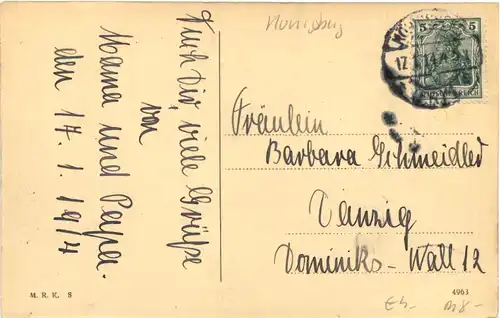 Auch Dir, viele Grüße
von
Mama und Papa.
den 17. 1. 1914
M. R. K. S
5 5
DEUTSCHES REICH
Fräulein
Barbara Schmeidler
Danzig
Dominiks-Wall 12
4963